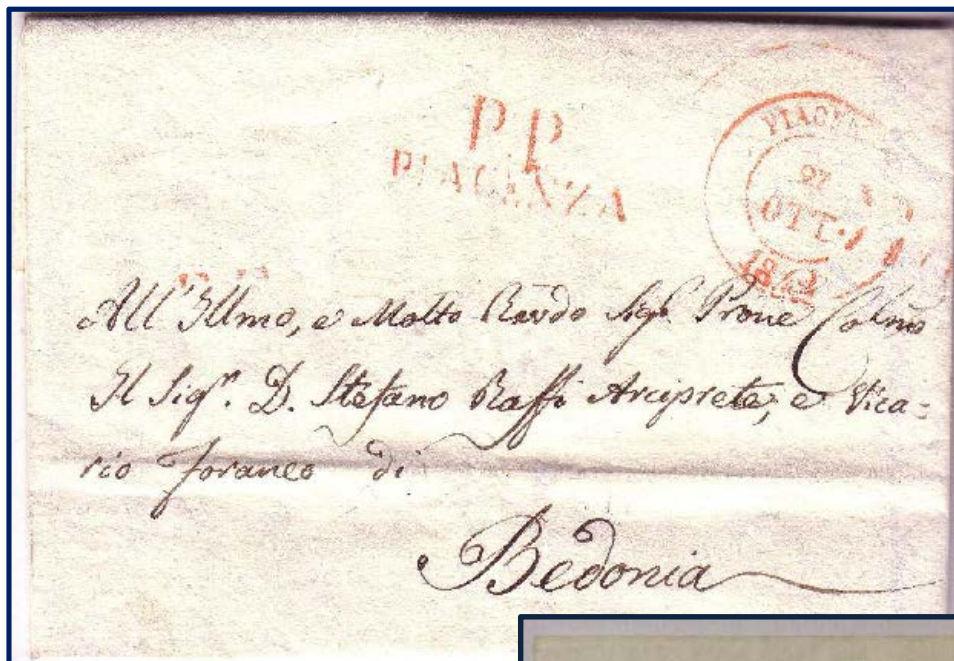 P.P.
PIACENZA
PIACEN
27
OTT.
All' Illmo, e Molto Revdo Sigr Prone Colmo
Il Sigr. D. Stefano Raffi Arciprete, e Vica=
rio Foraneo di
Bedonia